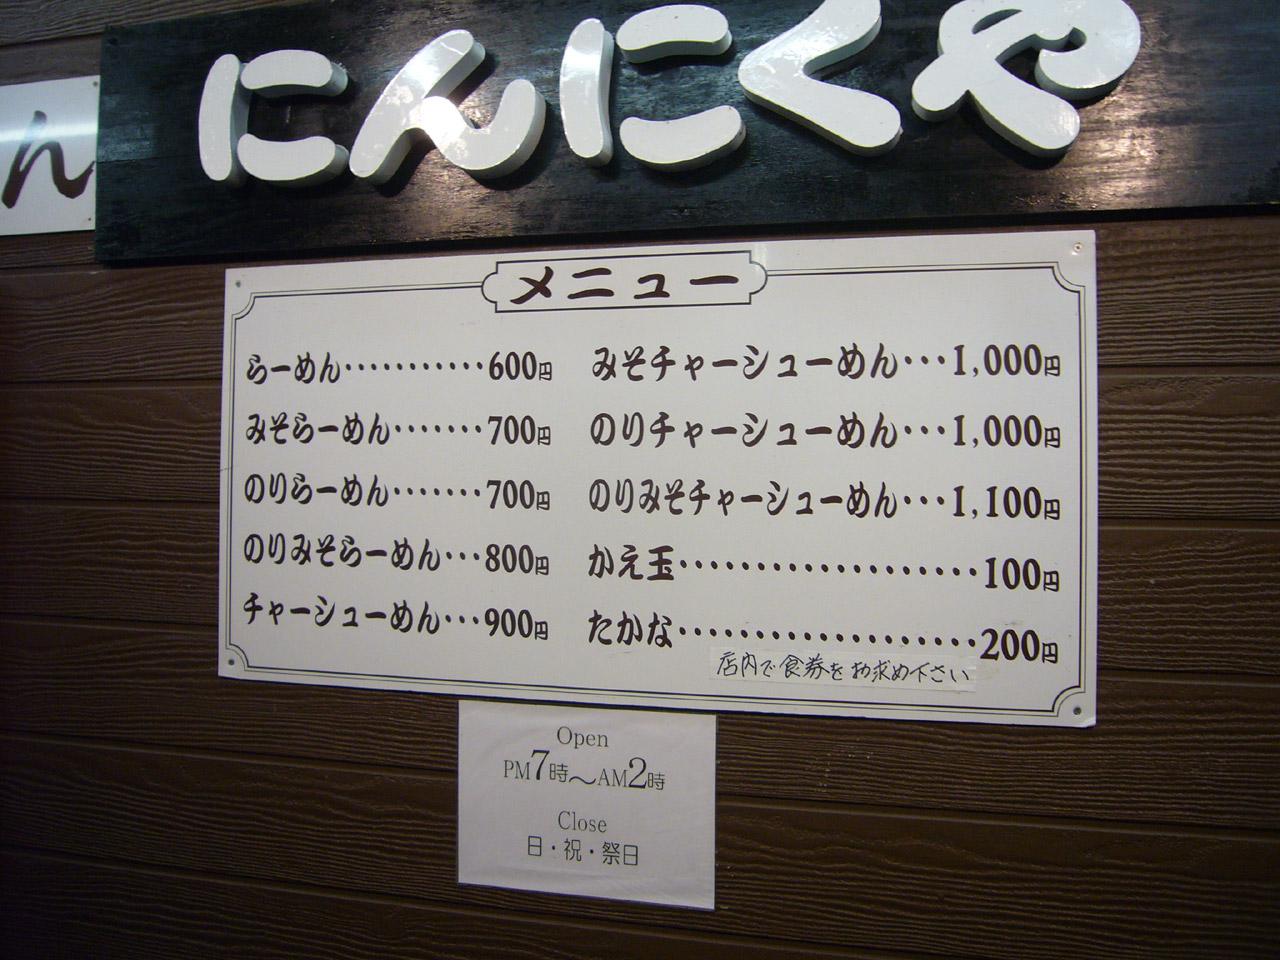 にんにくや
ん
メニュー
らーめん・・・・・・・・・・・600円
みそらーめん・・・・・・・700円
のりらーめん・・・・・・・700円
のりみそらーめん・・・800円
チャーシューめん・・・900円
みそチャーシューめん・・・1,000円
のりチャーシューめん・・・1,000円
のりみそチャーシューめん・・・1,100円
かえ玉・・・・・・・・・・・・・・・・・・・100円
たかな・・・・・・・・・・・・・・・・・・・200円
店内で食券をお求め下さい
Open
PM7時〜AM2時
Close
日・祝・祭日